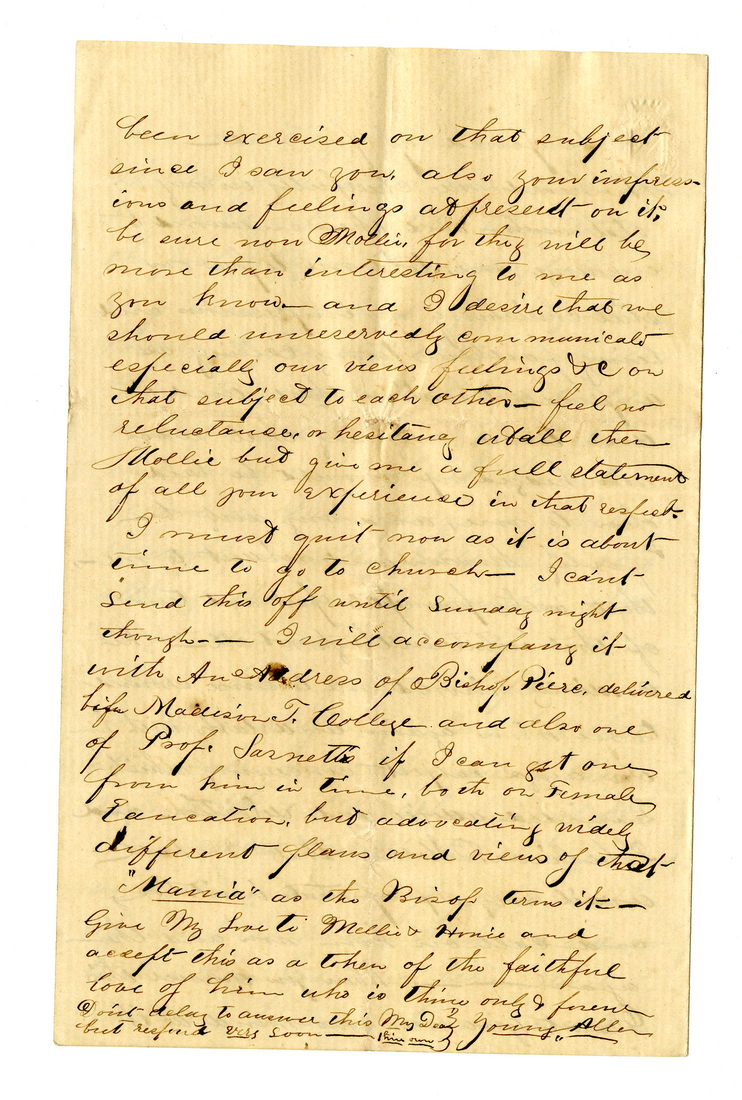 been exercised on that subject
since I saw you, also your impress-
ions and feelings at present on it,
be sure now Mollie, for they will be
more than interesting to me as
you know— and I desire that we
should unreservedly communicate
especially our views feelings &C on
that subject to each other— feel no
reluctance, or hesitancy at all then
Mollie but give me a full statement
of all your experience in that respect.
I must quit now as it is about
time to go to church— I can't
send this off until Sunday night
though— — I will accompany it
with An Address of Bishop Pierc, delivered
befr Madison F. College and also one
of Prof. Sarnett's if I can get one
from him in time, both on Female
Education, but advocating widely
different plans and views of that
"Mania" as the Bisop terms it—
Give My Love to Mellie & Honie and
accept this as a token of the faithful
love of him who is thine only & forever
Don't delay to answer this My Dear Young Allen
but respond very soon— thine own